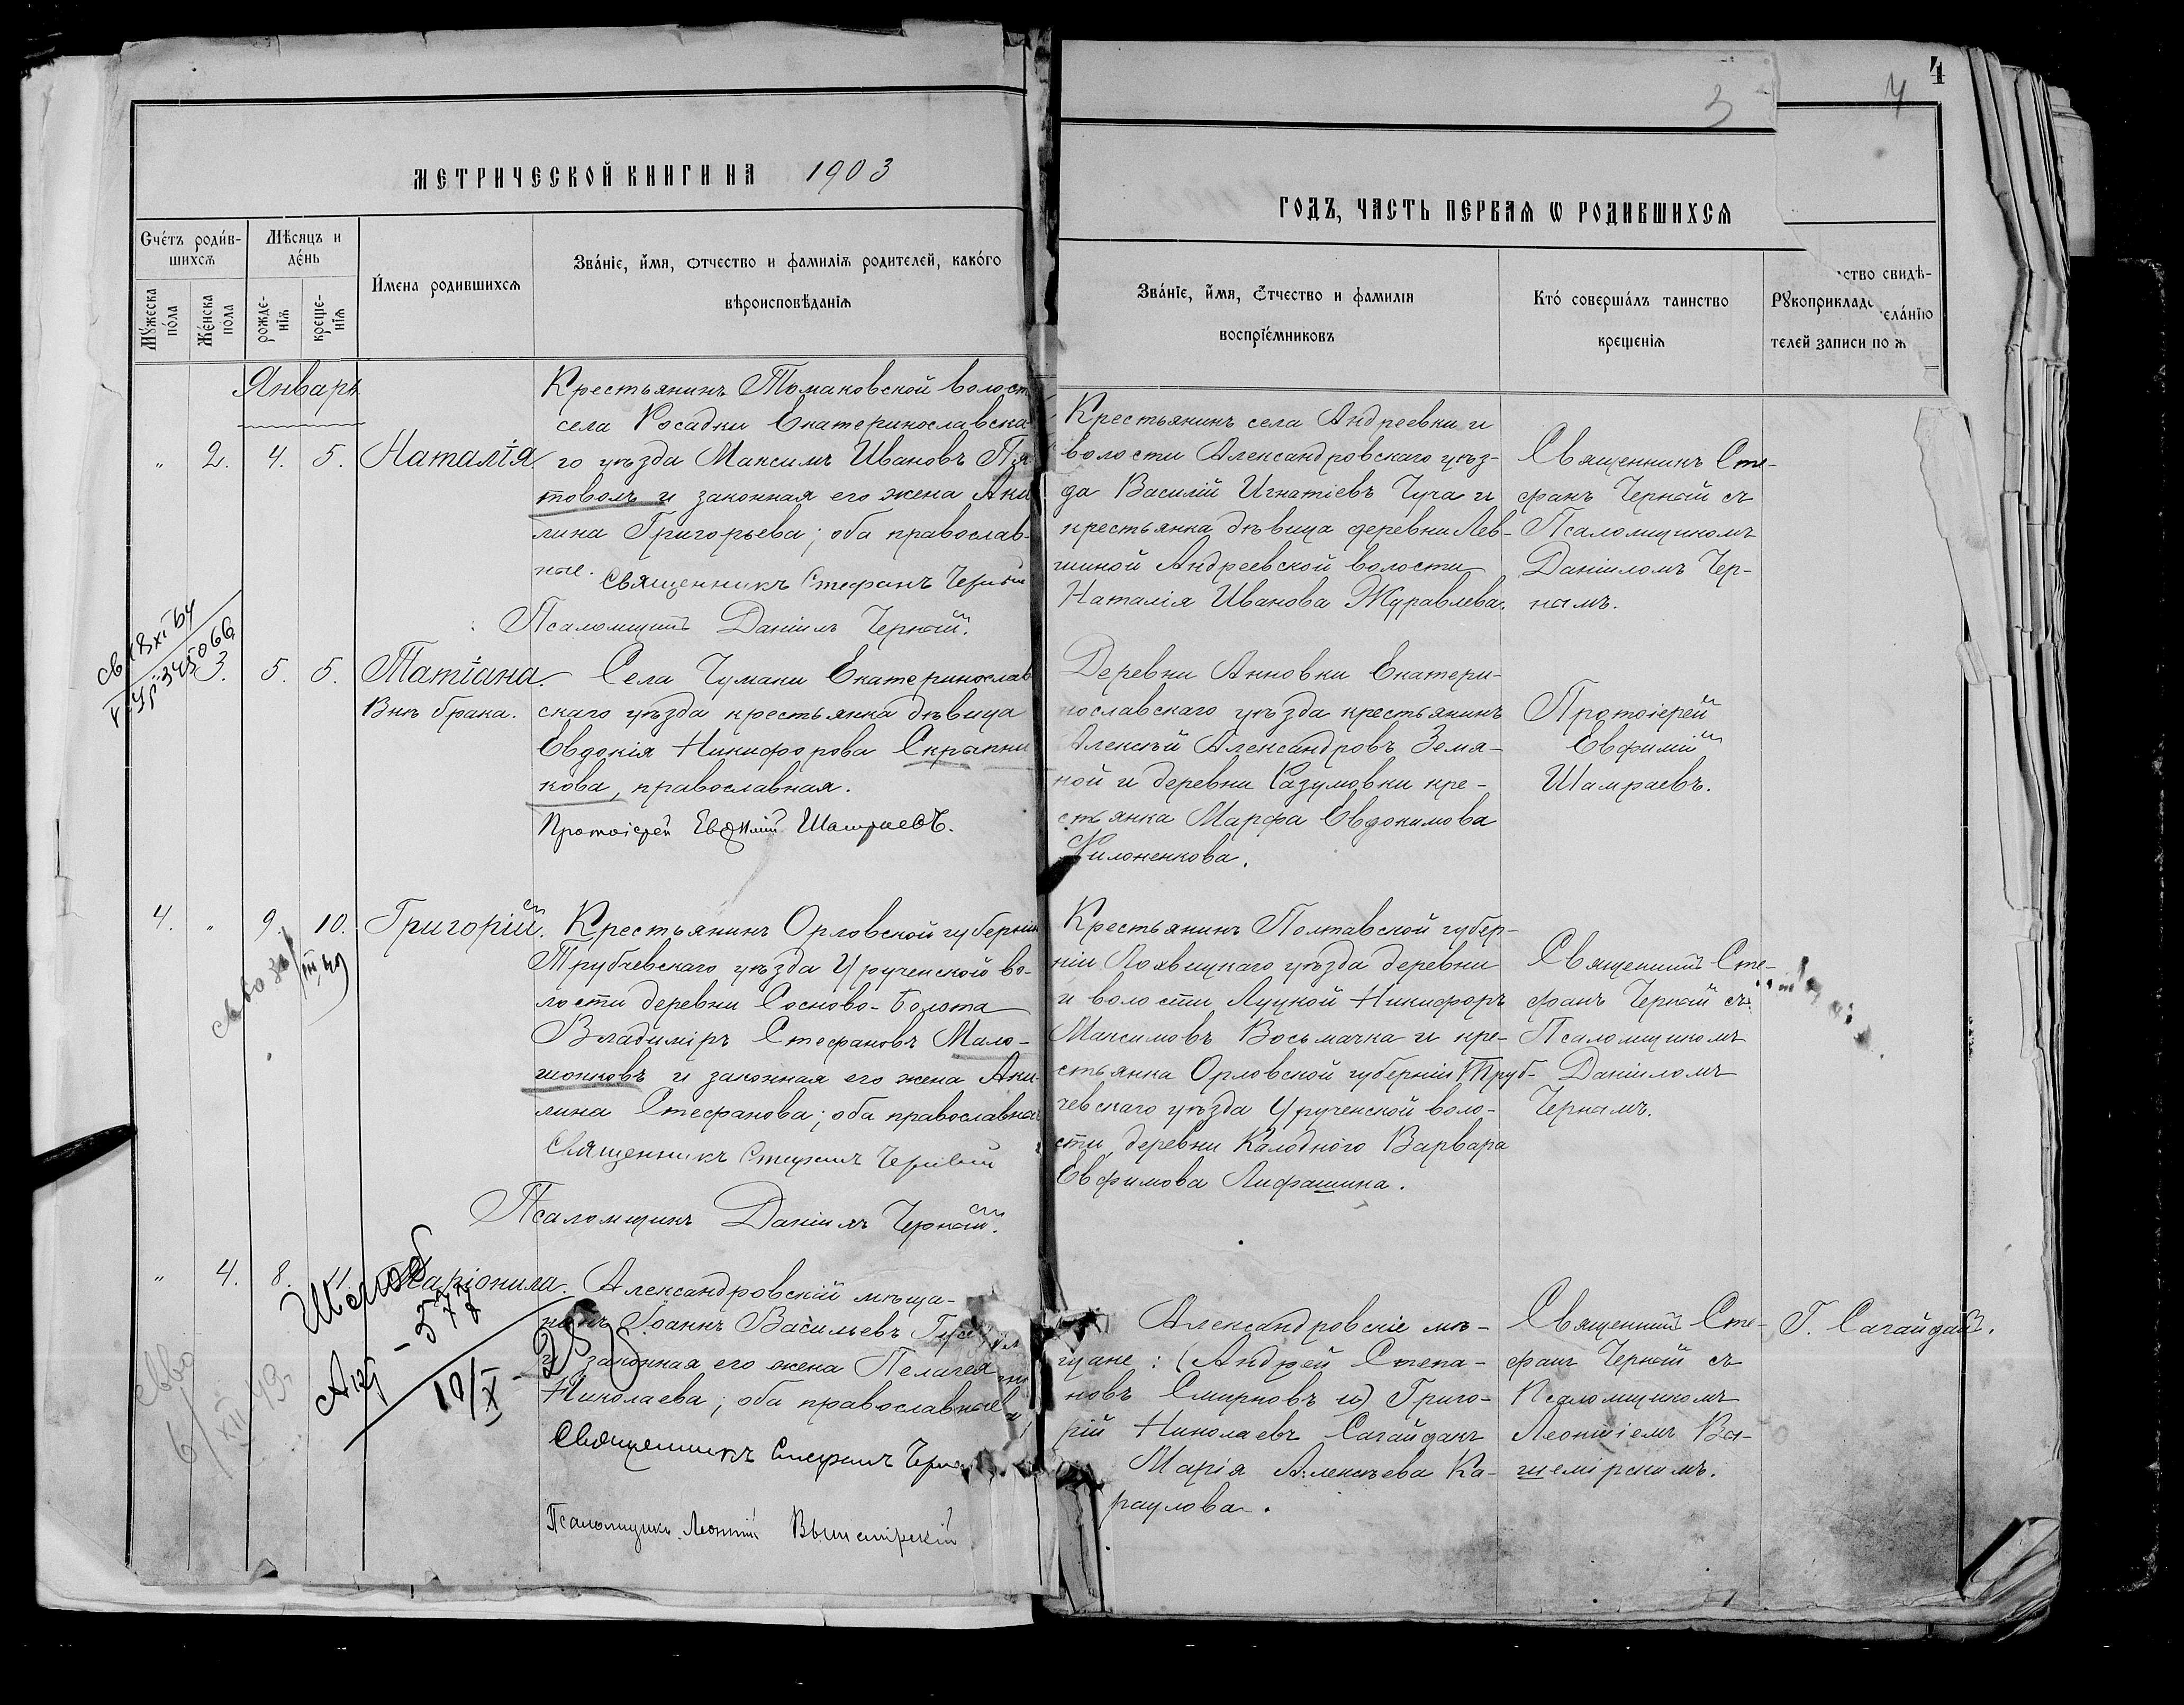 4
3
4
МЕТРИЧЕСКОЙ КНИГИ НА 1903
ГОДЪ, ЧАСТЬ ПЕРВАЯ Ѡ РОДИВШИХСЯ
Счéтъ роди́в-
шихсѧ
Мѣсяцъ и
дéнь
Мꙋ́жеска
пóла
Жéнска
пóла
рожде-
нїѧ
креще-
нїѧ
И҆́мена родившихсѧ
Звáнїе, и҆́мя, ѻтчество и фамилїѧ родителей, какóго
вѣроисповѣданїѧ
Звáнїе, и҆́мя, ѻ҆́тчество и фамилїя
воспрїéмниковъ
Ктó совершáлъ таинство
крещенїѧ
ство свидѣ-
Рꙋкоприкладс
елáнїю
телей записи по ж
Январь
„ 2. 4. 5. Наталія.
Крестьянинъ Томаковской волост
села Росадки Екатеринославска
го уѣзда Максимъ Ивановъ Пя
товолъ и законная его жена Аки
лина Григорьева; оба православ-
ные. Священникъ Стефанъ Черный
Псаломщикъ Даніилъ Черный.
Крестьянинъ села Андреевки и
волости Александровскаго уѣз-
да Василій Игнатіевъ Чуча и
крестьянка дѣвица деревни Лев-
шиной Андреевской волости
Наталія Иванова Журавлева.
Священникъ Сте-
фанъ Черный съ
Псаломщикомъ
Даніиломъ Чер-
нымъ.
3. 5. 5. Татіана.
Внѣ брака.
Села Чумаки Екатеринослав
скаго уѣзда крестьянка дѣвица
Евдокія Никифорова Скрыпни
кова, православная.
Протоіерей Евѳимій Шамраевъ.
Деревни Анновки Екатери-
нославскаго уѣзда крестьянинъ
Алексѣй Александровъ Земя-
ной и деревни Разумовки кре-
стьянка Марфа Евдокимова
Филоненкова.
Протоіерей
Евфимій
Шамраевъ.
4. „ 9. 10. Григорій.
Крестьянинъ Орловской губерніи
Трубчевскаго уѣзда Урученской во-
лости деревни Сосново-Болота
Владиміръ Стефановъ Мало-
шонковъ и законная его жена Аки-
лина Стефанова; оба православны
Священникъ Стефанъ Черный
Псаломщикъ Даніилъ Черный.
Крестьянинъ Полтавской губер-
ніи Лохвицкаго уѣзда деревни
и волости Луцкой Никифоръ
Максимовъ Восьмачка и кре-
стьянка Орловской губерніи Труб-
чевскаго уѣзда Урученской воло-
сти, деревни Калодного Варвара
Евфимова Лифашина.
Священникъ Сте-
фанъ Черный съ
Псаломщикомъ
Даніиломъ
Чернымъ.
„ 4. 8. Маріонила.
Александровскій мѣща-
нинъ Іоаннъ Васильевъ
и законная его жена Пелагея
Николаева; оба православные
Священникъ Стефанъ Черны
Псаломщикъ Леонтій Вышемірскій
Александровскіе мѣ-
щане: (Андрей Степа-
новъ Смирновъ и) Григо-
рій Николаевъ Сагайдакъ
Марія Алексѣева Ка-
раулова.
Священникъ Сте-
фанъ Черный съ
Псаломщикомъ
Леонтіемъ Вы-
шемірскимъ.
Г. Сагайдакъ.
577
10/X - 28